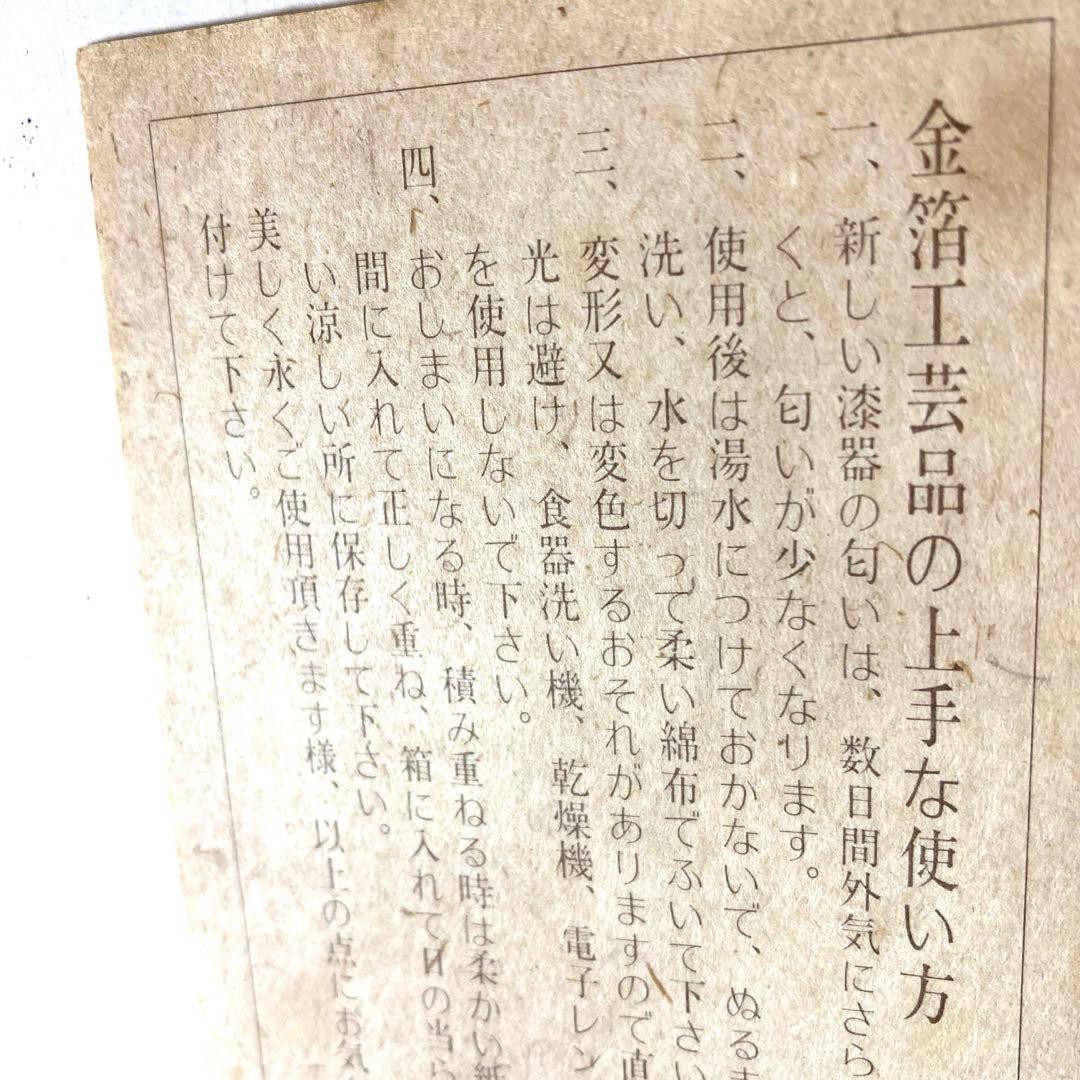 金箔工芸品の上手な使い方
一、新しい漆器の匂いは、数日間外気にさら
くと、匂いが少なくなります。
二、使用後は湯水につけておかないで、ぬるま
洗い、水を切って柔い綿布でふいて下さい
三、変形又は変色するおそれがありますので直
光は避け、食器洗い機、乾燥機、電子レン
を使用しないで下さい。
四、おしまいになる時、積み重ねる時は柔かい紙
間に入れて正しく重ね、箱に入れて日の当ら
い涼しい所に保存して下さい。
美しく永くご使用頂きます様、以上の点にお気
付けて下さい。